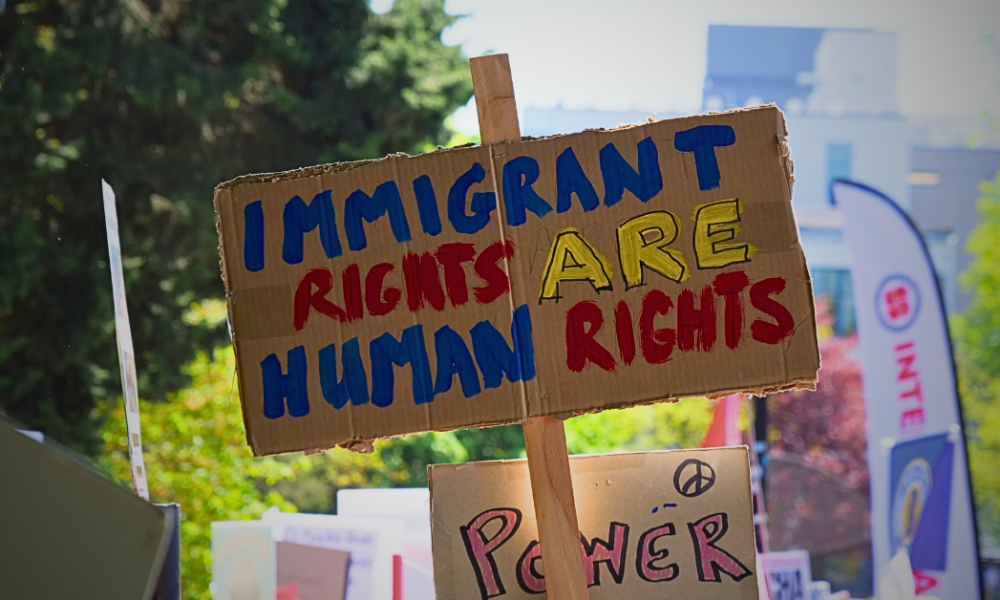 IMMIGRANT
RIGHTS ARE
HUMAN RIGHTS
POWER
INTE